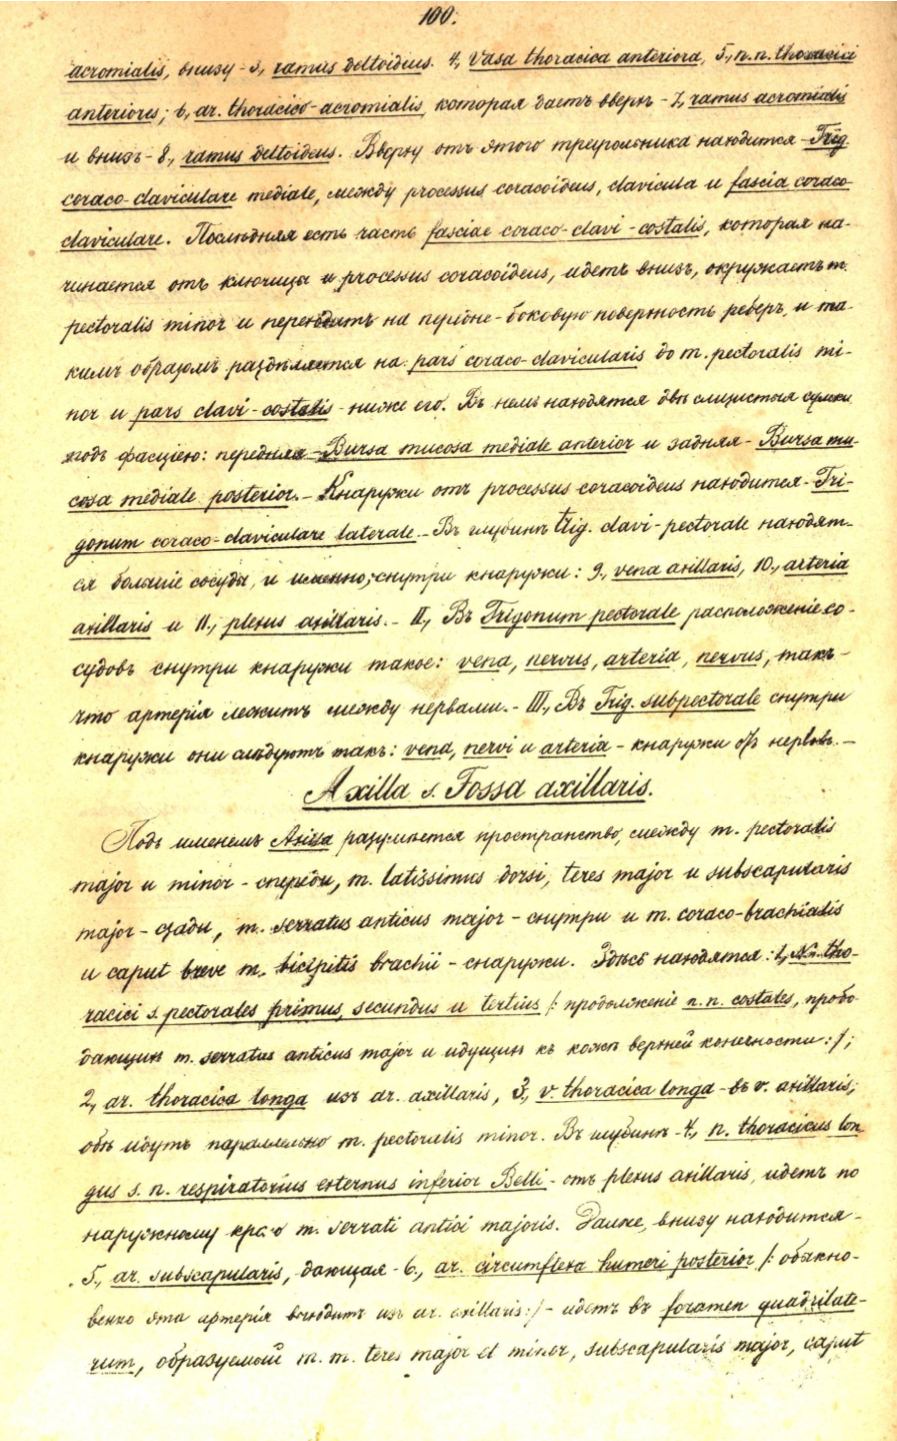 100.
acromialis, внизу - 3, ramus deltoideus. 4, Vasa thoracica anteriora, 5., n.n. thoracici
anteriores; 6, ar. thoracico-acromialis, которая даетъ вверхъ - 7, ramus acromialis
и внизъ - 8., ramus deltoideus. Вверху отъ этого треугольника находится - Trig.
coraco-claviculare mediale, между processus coracoideus, clavicula и fascia coraco-
claviculare. Послѣдняя есть часть fasciae coraco-clavi-costalis, которая на-
чинается отъ ключицы и processus coracoideus, идетъ внизъ, окружаетъ m.
pectoralis minor и переходитъ на передне-боковую поверхность реберъ, и та-
кимъ образомъ раздѣляется на pars coraco-clavicularis до m. pectoralis mi-
nor и pars clavi-costalis - ниже его. Въ немъ находятся двѣ слизистыя сумки
подъ фасціею: передняя - Bursa mucosa mediale anterior и задняя - Bursa mu-
cosa mediale posterior. - Кнаружи отъ processus coracoideus находится - Tri-
gonum coraco-claviculare laterale. - Въ глубинѣ trig. clavi-pectorale находят-
ся большіе сосуды, и именно, снутри кнаружи: 9, vena axillaris, 10., arteria
axillaris и 11., plexus axillaris. - II., Въ Trigonum pectorale расположеніе со-
судовъ снутри кнаружи такое: vena, nervus, arteria, nervus, такъ-
что артерія лежитъ между нервами. - III., Въ Trig. subpectorale снутри
кнаружи они слѣдуютъ такъ: vena, nervi и arteria - кнаружи отъ нервовъ. -
Axilla s. Fossa axillaris.
Подъ именемъ Axilla разумѣется пространство, между m. pectoralis
major и minor - спереди, m. latissimus dorsi, teres major и subscapularis
major - сзади, m. serratus anticus major - снутри и m. coraco-brachialis
и caput breve m. bicipitis brachii - снаружи. Здѣсь находятся: 1, N.n. tho-
racici s. pectorales primus, secundus и tertius /: продолженіе n.n. costales, пробо-
дающихъ m. serratus anticus major и идущихъ къ кожѣ верхней конечности :/;
2, ar. thoracica longa изъ ar. axillaris, 3, v. thoracica longa - въ v. axillaris;
обѣ идутъ параллельно m. pectoralis minor. Въ глубинѣ - 4., n. thoracicus lon-
gus s. n. respiratorius externus inferior Belli - отъ plexus axillaris, идетъ по
наружному краю m. serrati antici majoris. Далѣе, внизу находится -
5., ar. subscapularis, дающая - 6., ar. circumflexa humeri posterior /: обыкно-
венно эта артерія выходитъ изъ ar. axillaris :/ - идетъ въ foramen quadrilate-
rum, образуемой m. m. teres major et minor, subscapularis major, caput